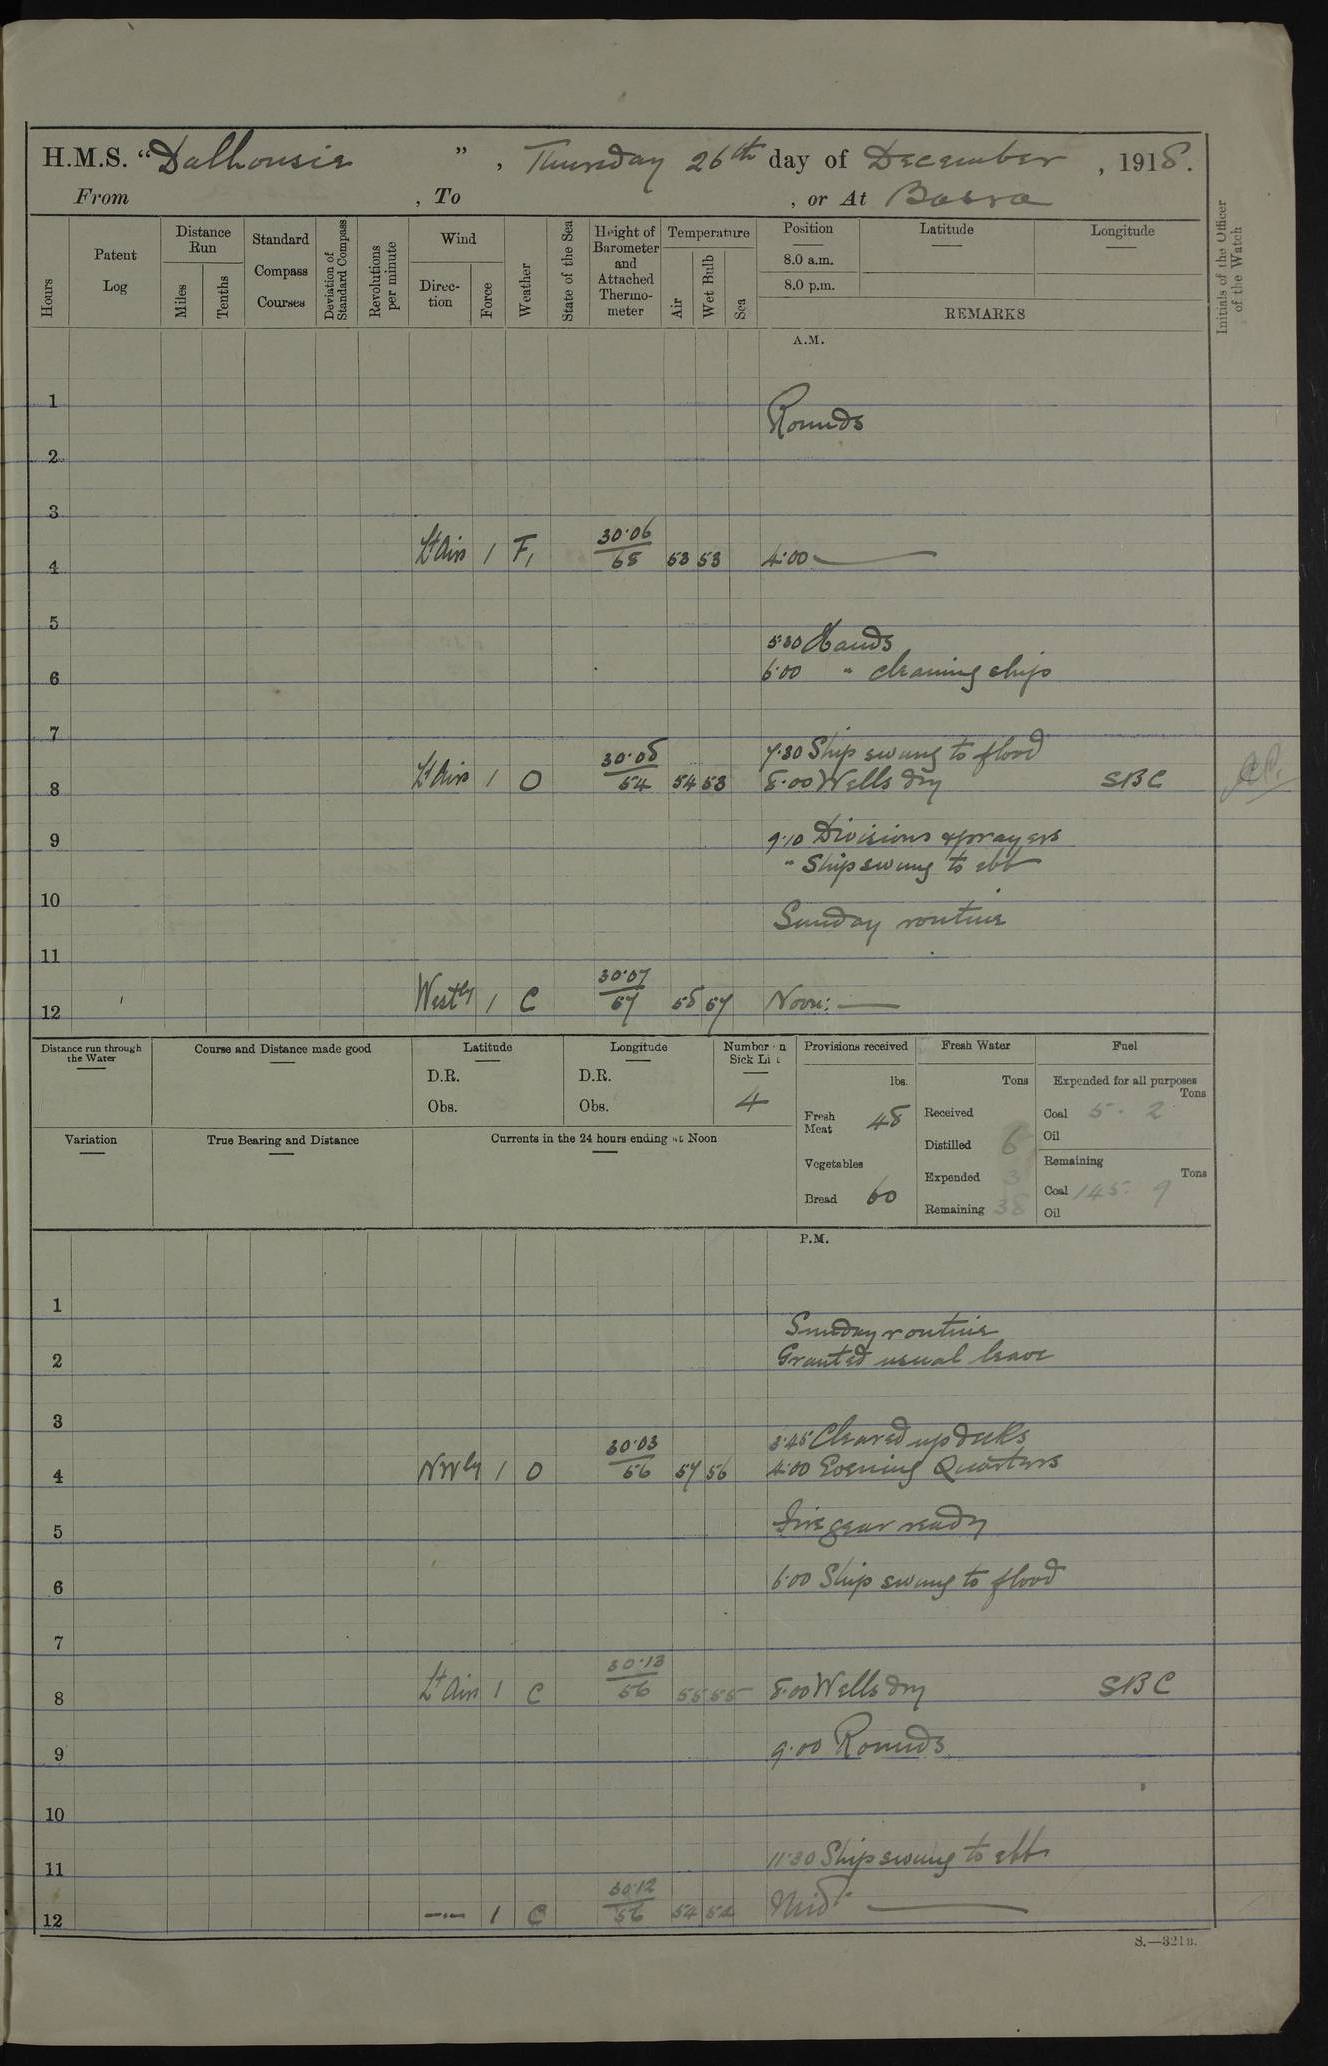 H.M.S. “Dalhousie ” , Thursday 26th day of December , 1918.
From , To , or At Basra
Hours
Patent Log
Distance Run
Miles
Tenths
Standard Compass Courses
Deviation of Standard Compass
Revolutions per minute
Wind
Direction
Force
Weather
State of the Sea
Height of Barometer and Attached Thermometer
Temperature
Air
Wet Bulb
Sea
Position
8.0 a.m.
8.0 p.m.
Latitude
Longitude
REMARKS
Initials of the Officer of the Watch
A.M.
1
Rounds
2
3
4 Lt Airs 1 F, 30.06 / 58 53 53 4.00
5
5.30 Hands
6 6.00 " cleaning ship
7
7.30 Ship swung to flood
8 Lt Airs 1 O 30.05 / 54 54 53 8.00 Wells dry SBC
9 9.10 Divisions & prayers
" Ship swung to ebb
10
Sunday routine
11
12 Westly 1 C 30.07 / 57 58 57 Noon:
Distance run through the Water
Course and Distance made good
Latitude
D.R.
Obs.
Longitude
D.R.
Obs.
Number on Sick List
4
Provisions received
lbs.
Fresh Meat 48
Vegetables
Bread 60
Fresh Water
Tons
Received
Distilled 6
Expended 3
Remaining 38
Fuel
Expended for all purposes
Tons
Coal 5. 2
Oil
Remaining
Tons
Coal 145. 9
Oil
Variation
True Bearing and Distance
Currents in the 24 hours ending at Noon
P.M.
1
Sunday routine
2 Granted usual leave
3
3.45 Cleared up decks
4 NWly 1 O 30.03 / 56 57 56 4.00 Evening Quarters
5 Fire gear ready
6 6.00 Ship swung to flood
7
8 Lt Airs 1 C 30.13 / 56 55 55 8.00 Wells dry SBC
9 9.00 Rounds
10
11 11.30 Ship swung to ebb
12 —"— 1 C 30.12 / 56 54 52 Midt.
S.—321B.